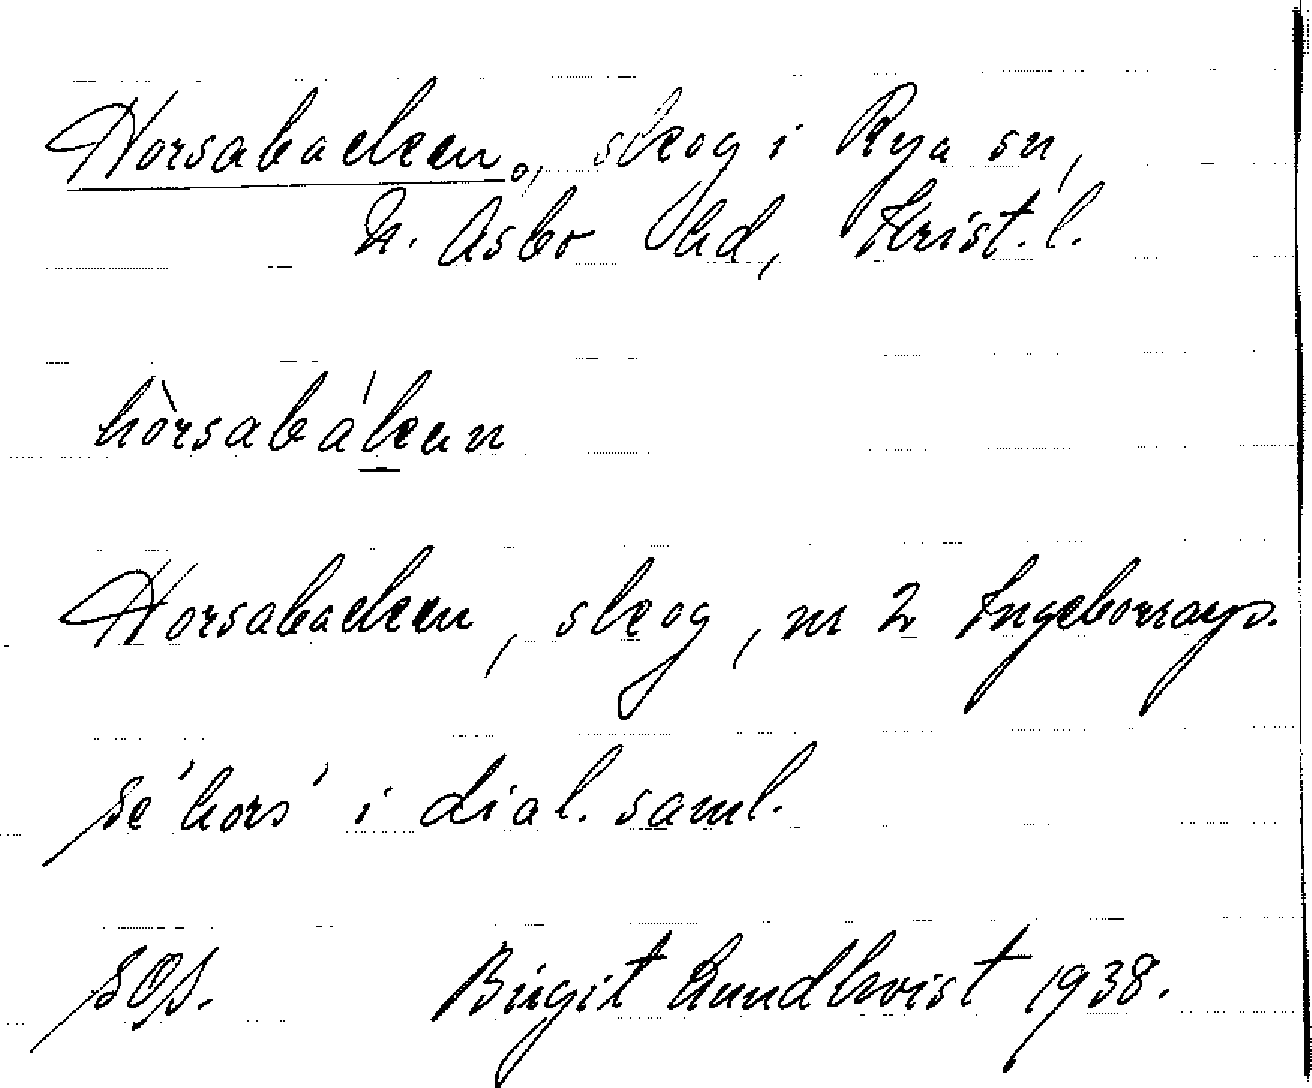 Horsabacken, skog i Rya sn,
N. Åsbo hd, Krist. l.
hòrsabákan
Horsabacken, skog, nr 2 Ingeborrayo.
Se 'hors' i dial. saml.
SOS. Birgit Lundkvist 1938.